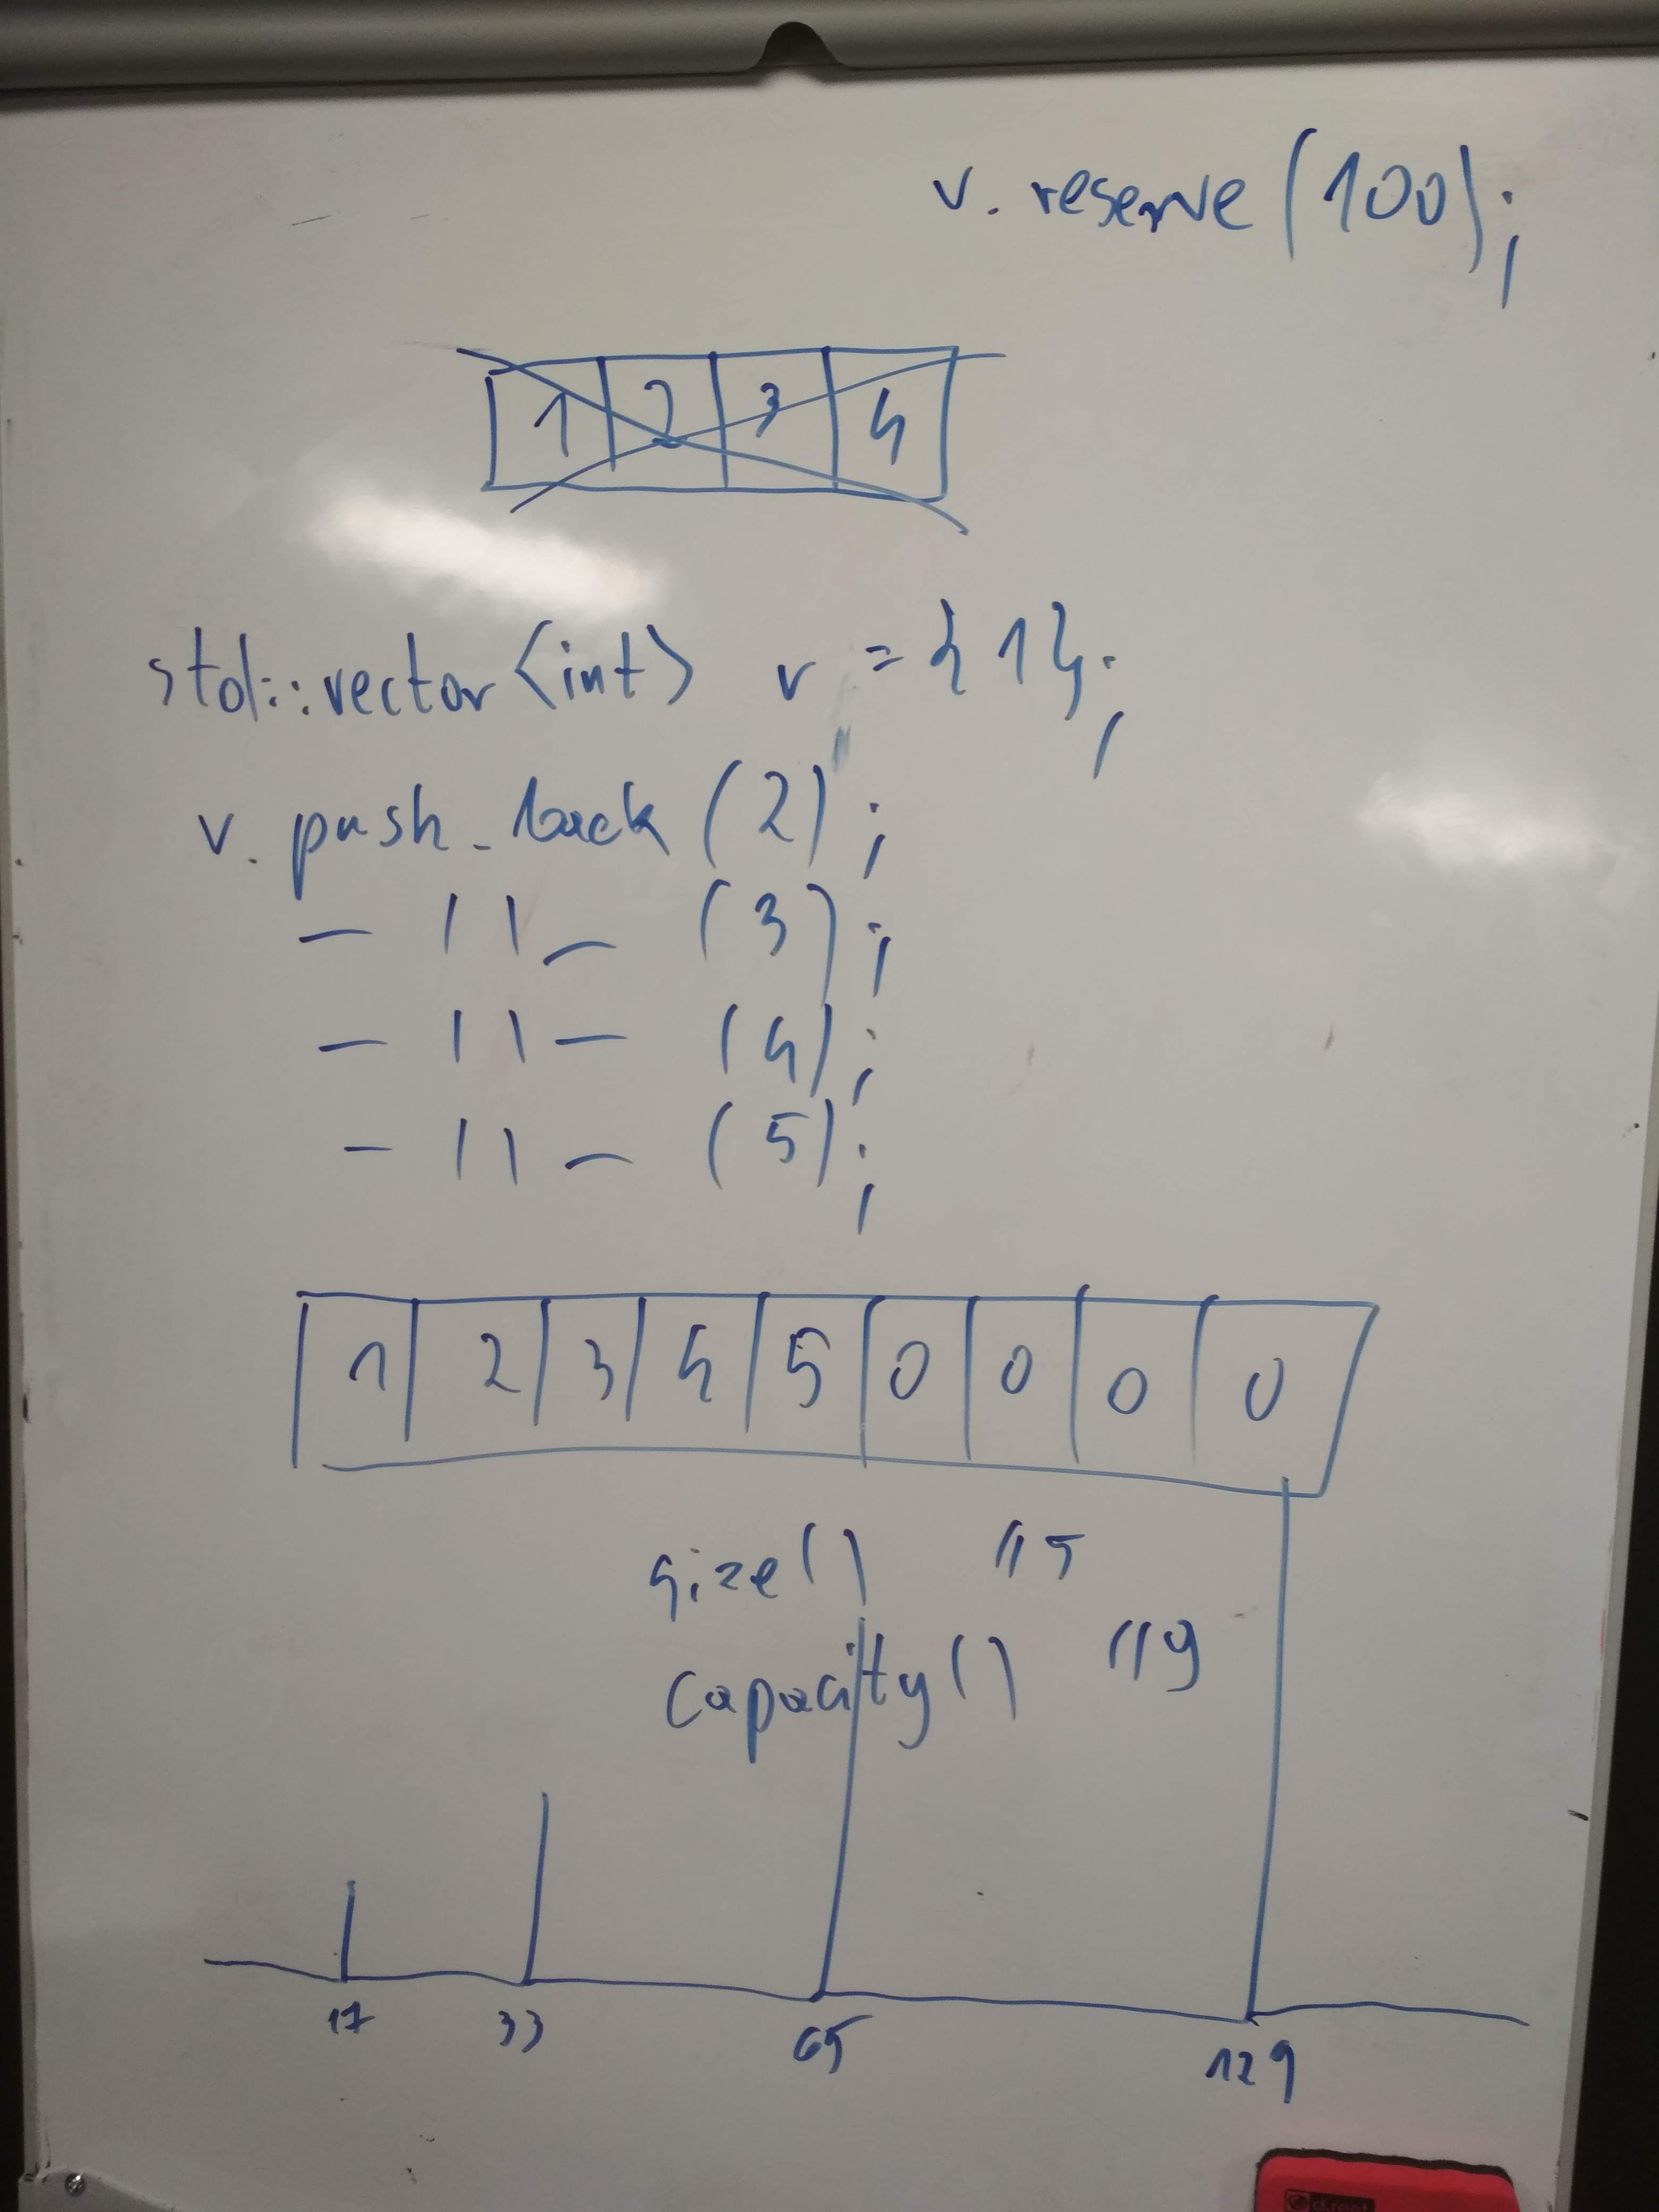 v. reserve (100);
1 2 3 4
std::vector<int> v = {1};
v. push_back (2);
— 11 — (3);
— 11 — (4);
— 11 — (5);
1 2 3 4 5 0 0 0 0
size() // 5
capacity() // 9
17 33 65 129